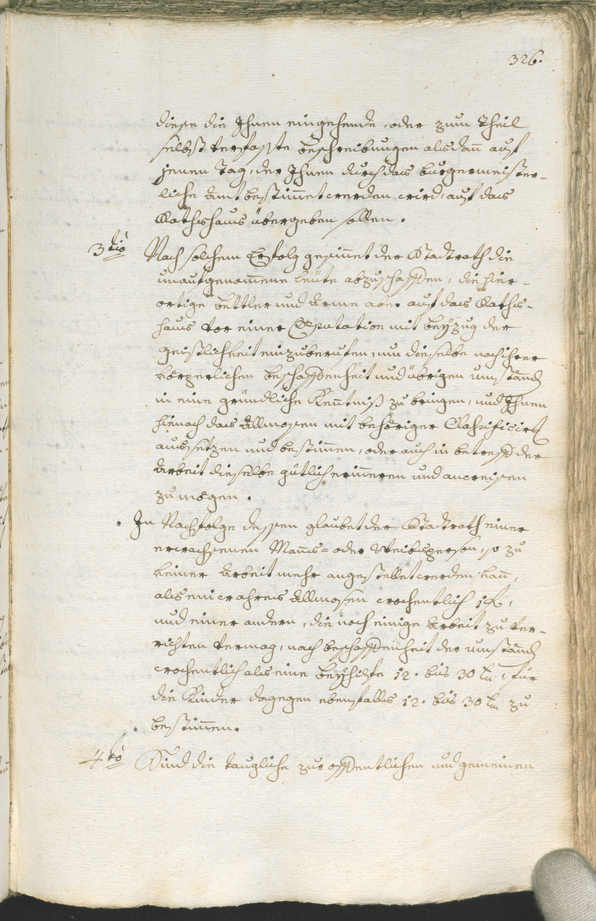 326.
diese die Ihnen eingehende, oder zum Theil
selbst verfasste beschreibungen alsdan auf
jenen Tag, der Ihnen durch das burgermeister-
liche Amt bestimet werden wird, auf das
Rathshaus übergeben sollen.
3tio Nach solchem Erfolg gesinnet der Stadtrath die
unaufgenomene leüte abzuschaffen, die hier-
ortige bettler und Arme aber auf das Raths-
haus vor einer Deputation mit beyzug der
geistlichkeit einzuberufen, um dieselbe nach ihrer
körperlichen beschaffenheit und übrigen umständ
in eine gründliche Kentniß zu bringen, und Ihnen
hienach das Allmosen mit behöriger
aussetzen und bestimen, oder auch in betreff der
Arbeit dieselbe gütlich erinneren und anweisen
zu mögen.
In Nachfolge dessen glaubet der Stadtrath einer
erwachsenen Manns- oder Weibsperson, so zu
keiner Arbeit mehr angestellet werden kan,
als ein wahres Allmosen wochentlich 1 f.,
und einer andern, die noch einige Arbeit zu ver-
richten vermag, nach beschaffenheit der umständ
wochentlich als eine beyhilfe 12. bis 30 kr., für
die Kinder dagegen ebenfalls 12. bis 30 kr. zu
bestimen.
4to Sind die taugliche zur offentlichen und gemeinen